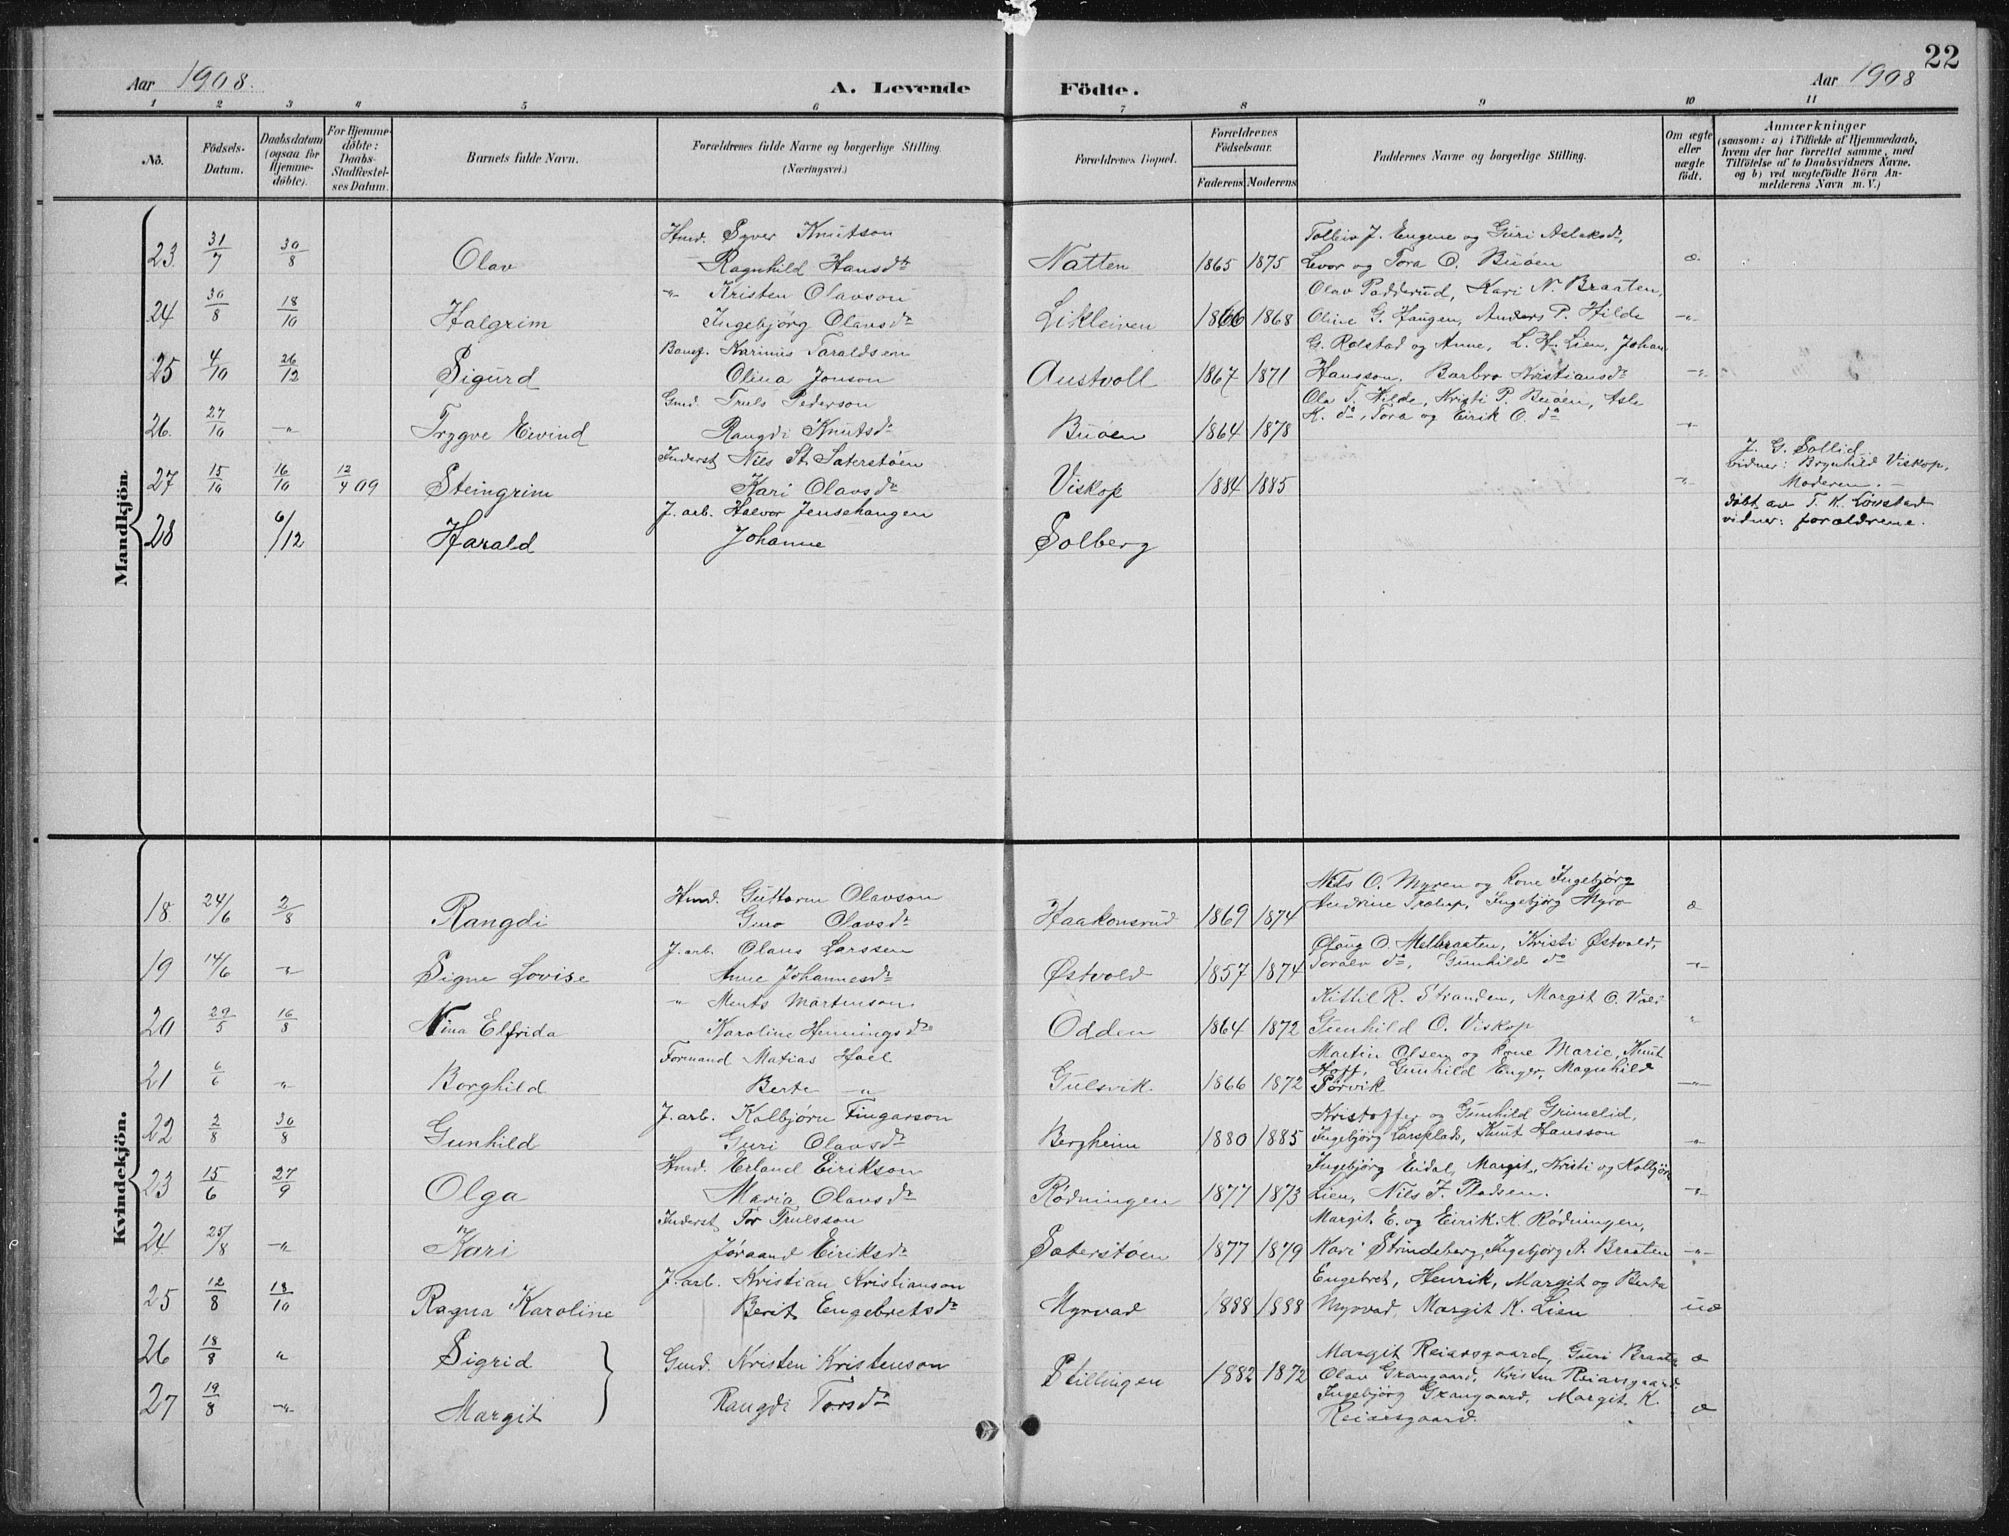 22
Aar 1908. A. Levende Födte. Aar 1908
1 2 3 4 5 6 7 8 9 10 11
No. Födsels-Datum. Daabsdatum (ogsaa for Hjemme-döbte). For Hjemme-døbte: Daabs-Stadfæstel-ses Datum. Barnets fulde Navn. Forældrenes fulde Navne og borgerlige Stilling. (Næringsvei.) Forældrenes Bopæl. Forældrenes Födselsaar. Faderens Moderens Faddernes Navne og borgerlige Stilling. Om ægte eller uægte födt. Anmærkninger (saasom: a) i Tilfælde af Hjemmedaab, hvem der har forrettet samme, med Tilföielse af to Daabsvidners Navne, og b) ved uægtefödte Börn An-melderens Navn m. V.)
Mandkjön.
Gmd. Syver Knutson Tolleiv J. Engene og Guri Aslaksdr,
23 31/7 30/8 Olav Ragnhild Hansdr Natten 1865 1875 Levor og Tora O. Buøen æ.
-"- Kristen Olavson Olav Padderud, Kari N. Braaten,
24 30/8 18/10 Halgrim Ingebjörg Olavsdr Likleiven 1866 1868 Oline G. Haugen, Anders P. Hilde -"-
Banef. Karinius Taraldsen G. Rolstad og Anne, L. H. Lien, Johan
25 4/10 26/12 Sigurd Olina Jonson Austvoll 1867 1871 Hansson, Barbro Kristiansdr -"-
Gmd. Truls Pederson Ola T. Hilde, Kristi P. Buøen, Asle
26. 27/10 -"- Trygve Eivind Rangdi Knutsdr Buøen 1864 1878 K. do, Tora og Eirik O. do -"-
Inderst Nils St. Saterstøen J. G. Sollid
27 15/10 16/10 12/4 09 Steingrim Kari Olavsdr Viskop 1884 1885 -"- vidner: Brynhild Viskop,
Moderen. -
J. arb. Halvor Jensehaugen døbt av T. K. Lövstad
28 6/12 Harald Johanne Solberg vidner: forældrene.
Kvindekjön.
Gmd. Guttorm Olavson Nils O. Myren og kone Ingebjörg
18. 24/6 2/8 Rangdi Guro Olavsdr Haakonsrud 1869 1874 Ingebjörg Myro æ
J. arb. Olaus Larssen Olaug O. Melbraaten, Kristi Østvold,
19 14/6 -"- Signe Lovise Anne Johannesdr Østvold 1857 1874 Toralv do, Gunhild do -"-
-"- Ments Martinson Kittil R. Stranden, Margit O. Vold
20 29/5 16/8 Nina Elfrida Karoline Henningsdr Odden 1864 1872 Gunhild O. Viskop "
Formand Matias Hoel Martin Olsen og kone Marie, Knut
21 6/6 -"- Borghild Berte -"- Gulsvik 1866 1872 Hoff, Gunhild Enger, Magnhild
Sørvik -"-
J. arb. Kolbjörn Fingarson Kristoffer og Gunhild Grimelid,
22 2/8 30/8 Gunhild Guri Olavsdr Bergheim 1880 1885 Ingebjörg Larsplads, Knut Hansson -"-
Gmd. Erland Eirikson Ingebjörg Eidal, Margit, Kristi og Kolbjörn
23 15/6 27/9 Olga Maria Olavsdr Rödningen 1877 1873 Lien, Nils J. Pladsen. -"-
Inderst Tor Trulsson Margit E. og Eirik K. Rödningen,
24 25/8 -"- Kari Jøraand Eiriksdr Saterstøen 1877 1879 Kari Strindeberg, Ingebjörg A. Braaten -"-
J. arb. Kristian Kristianson Engebret, Henrik, Margit og Berta
25 12/8 18/10 Ragna Karoline Berit Engebretsdr Myrvad 1888 1888 Myrvad, Margit K. Lien uæ
26 18/8 " Sigrid Gmd. Kristen Kristenson Margit Reiarsgaard, Guri Braaten æ
Stillingen 1882 1872 Olav Grangaard, Kristen Reiarsgaard,
27 19/8 -"- Margit Rangdi Torsdr Ingebjörg Grangaard, Margit K. æ
Reiarsgaard.